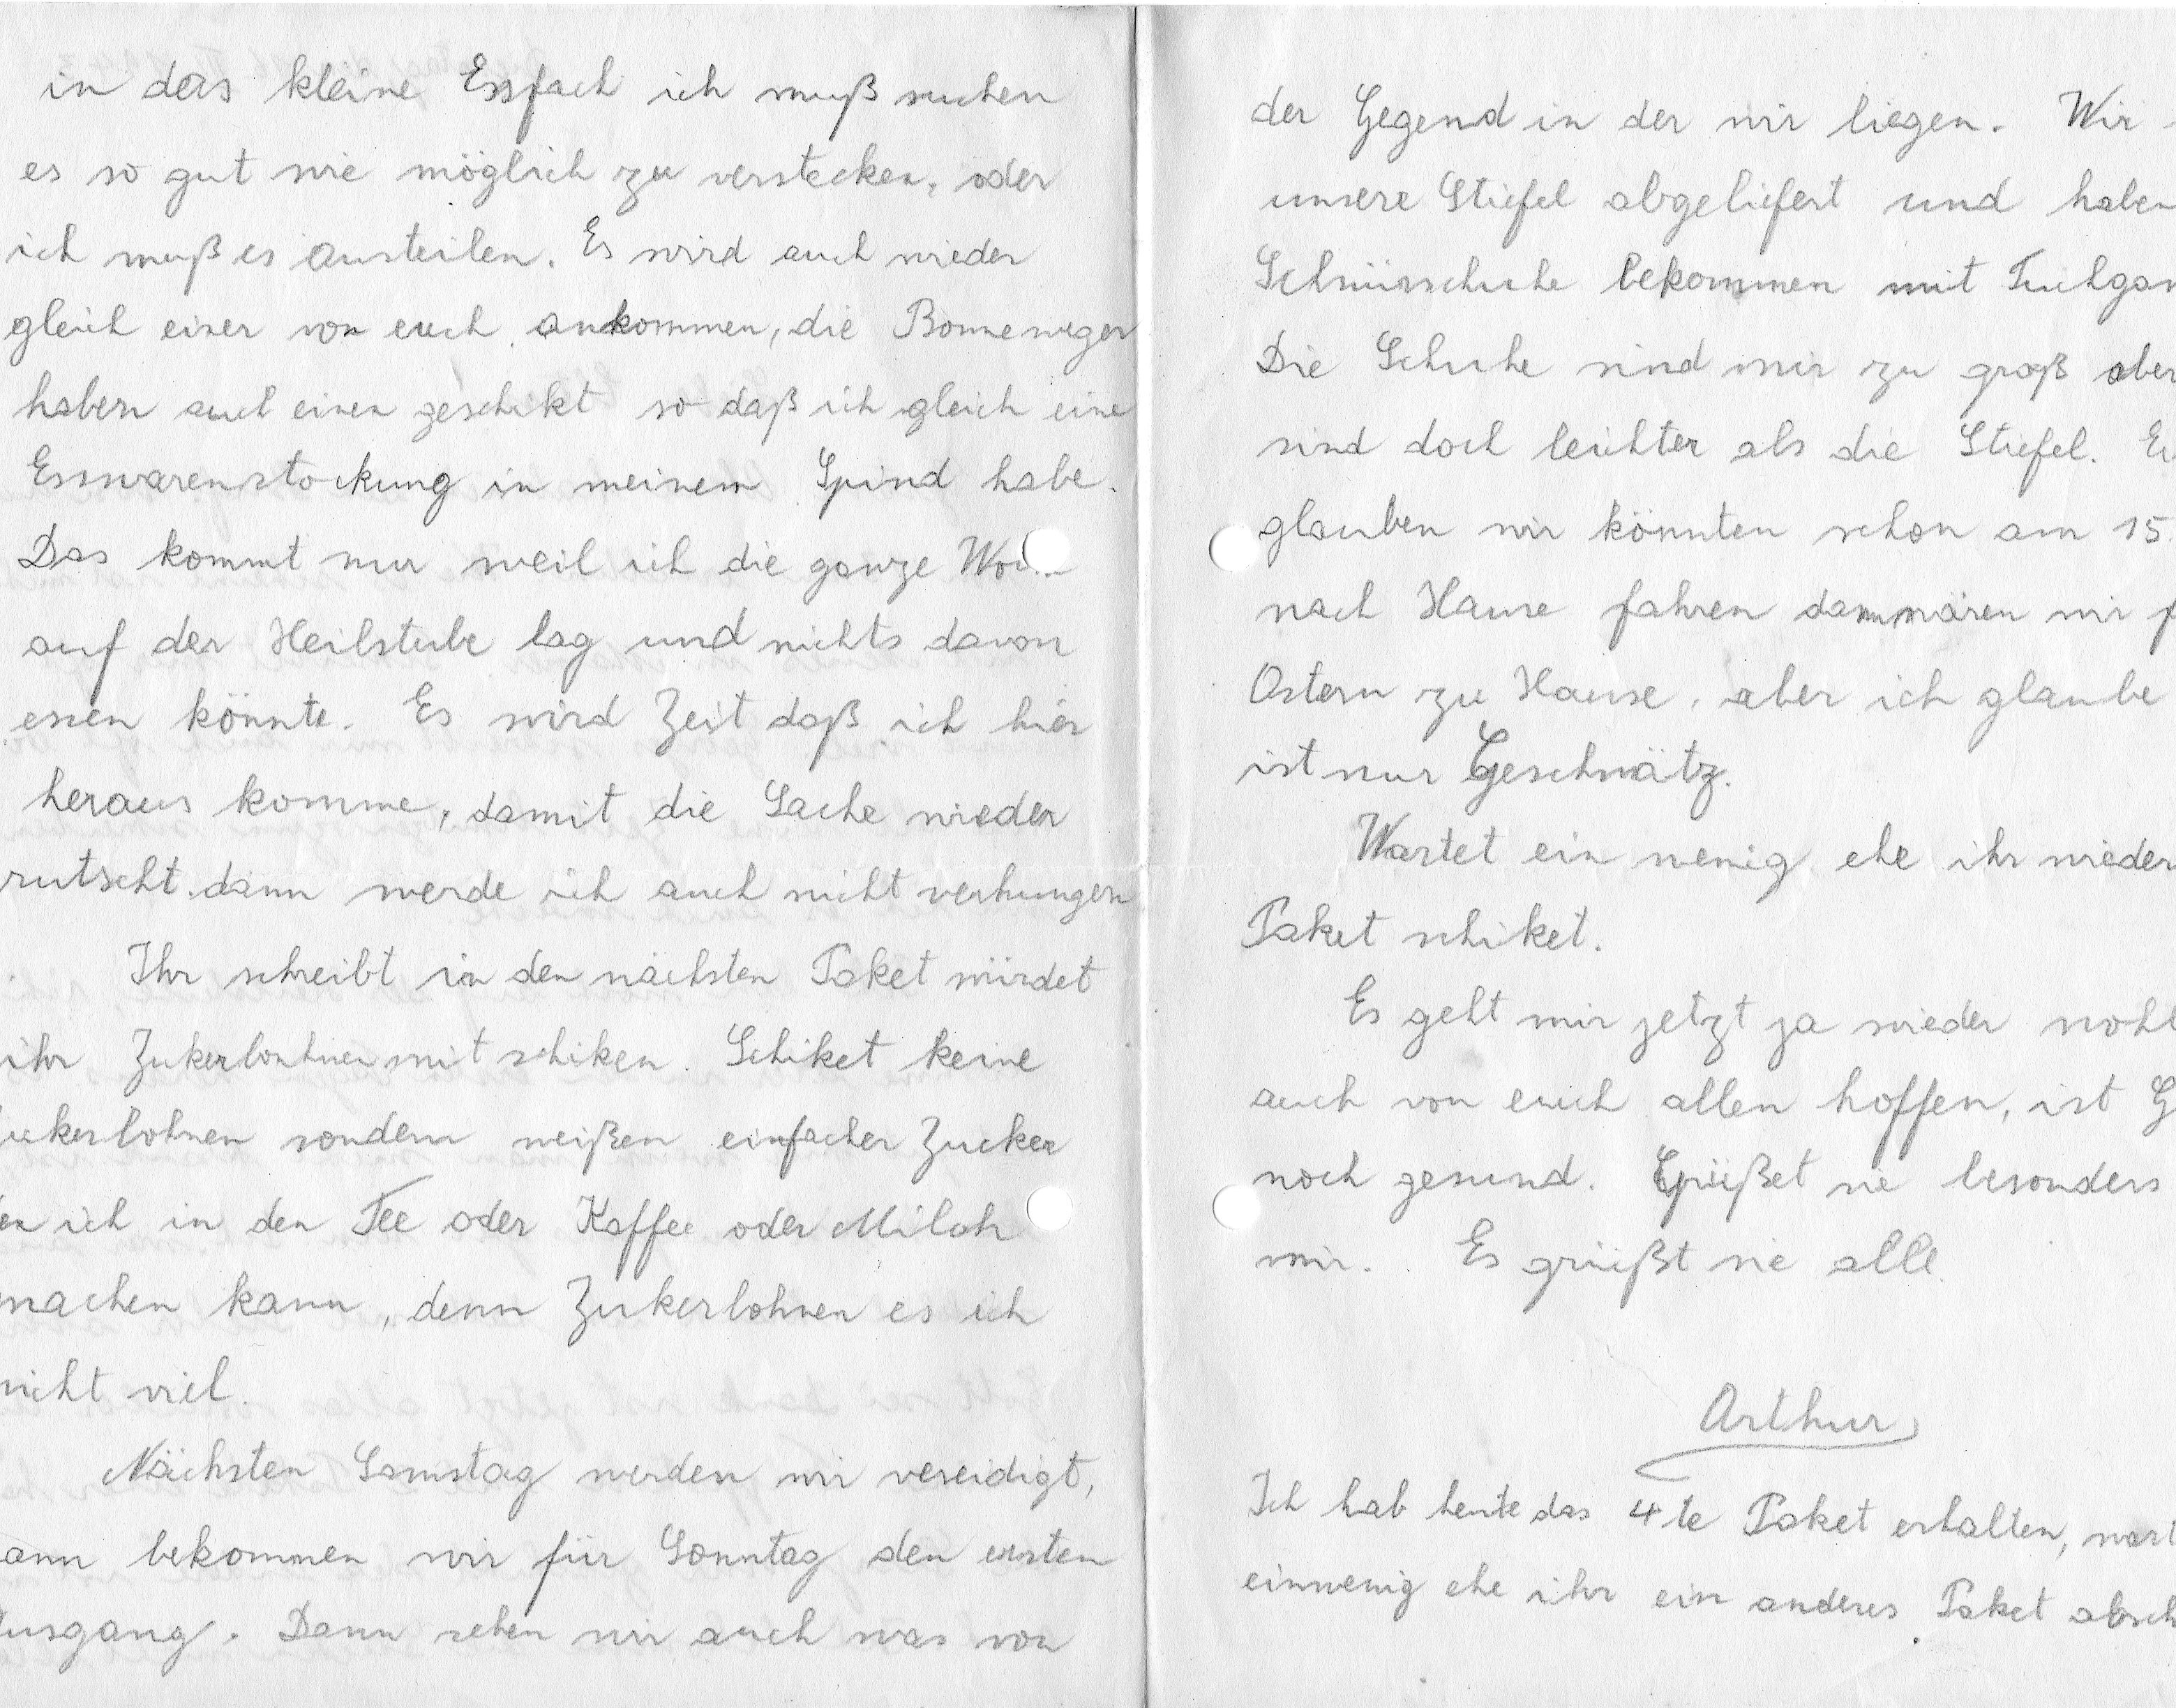 in das kleine Essfach ich muß suchen
es so gut wie möglich zu verstecken, oder
ich muß es austeilen. Es wird auch wieder
gleich einer von euch ankommen, die Bonneweger
haben auch einen geschikt so daß ich gleich eine
Esswarenstockung in meinem Spind habe.
Das kommt nur weil ich die ganze
auf der Heilstube lag und nichts davon
essen könnte. Es wird Zeit daß ich hier
heraus komme, damit die Sache wieder
rutscht dann werde ich auch nicht verhungern
Ihr schreibt in den nächsten Paket würdet
ihr Zukerbohnen mit schiken. Schiket keine
uckerbohnen sondern weißen einfacher Zucker
en ich in den Tee oder Kaffee oder Milch
machen kann, denn Zukerbohnen es ich
nicht viel.
Nächsten Samstag werden wir vereidigt,
ann bekommen wir für Sonntag den ersten
Ausgang. Dann sehen wir auch was von
der Gegend in der wir liegen. Wir
unsere Stiefel abgeliefert und haben
Schnürschuhe bekommen mit Tuchgam
Die Schuhe sind mir zu groß aber
sind doch leichter als die Stiefel. Ei
glauben wir könnten schon am 15.
nach Hause fahren dann wären wir
Ostern zu Hause, aber ich glaube
ist nur Geschwätz.
Wartet ein wenig ehe ihr wieder
Paket schiket.
Es geht mir jetzt ja wieder wohl
auch von euch allen hoffen, ist G
noch gesund. Grüßet sie besonders
mir. Es grüßt sie alle.
Arthur
Ich hab heute das 4te Paket erhalten, wart
einwenig ehe ihr ein anderes Paket absch